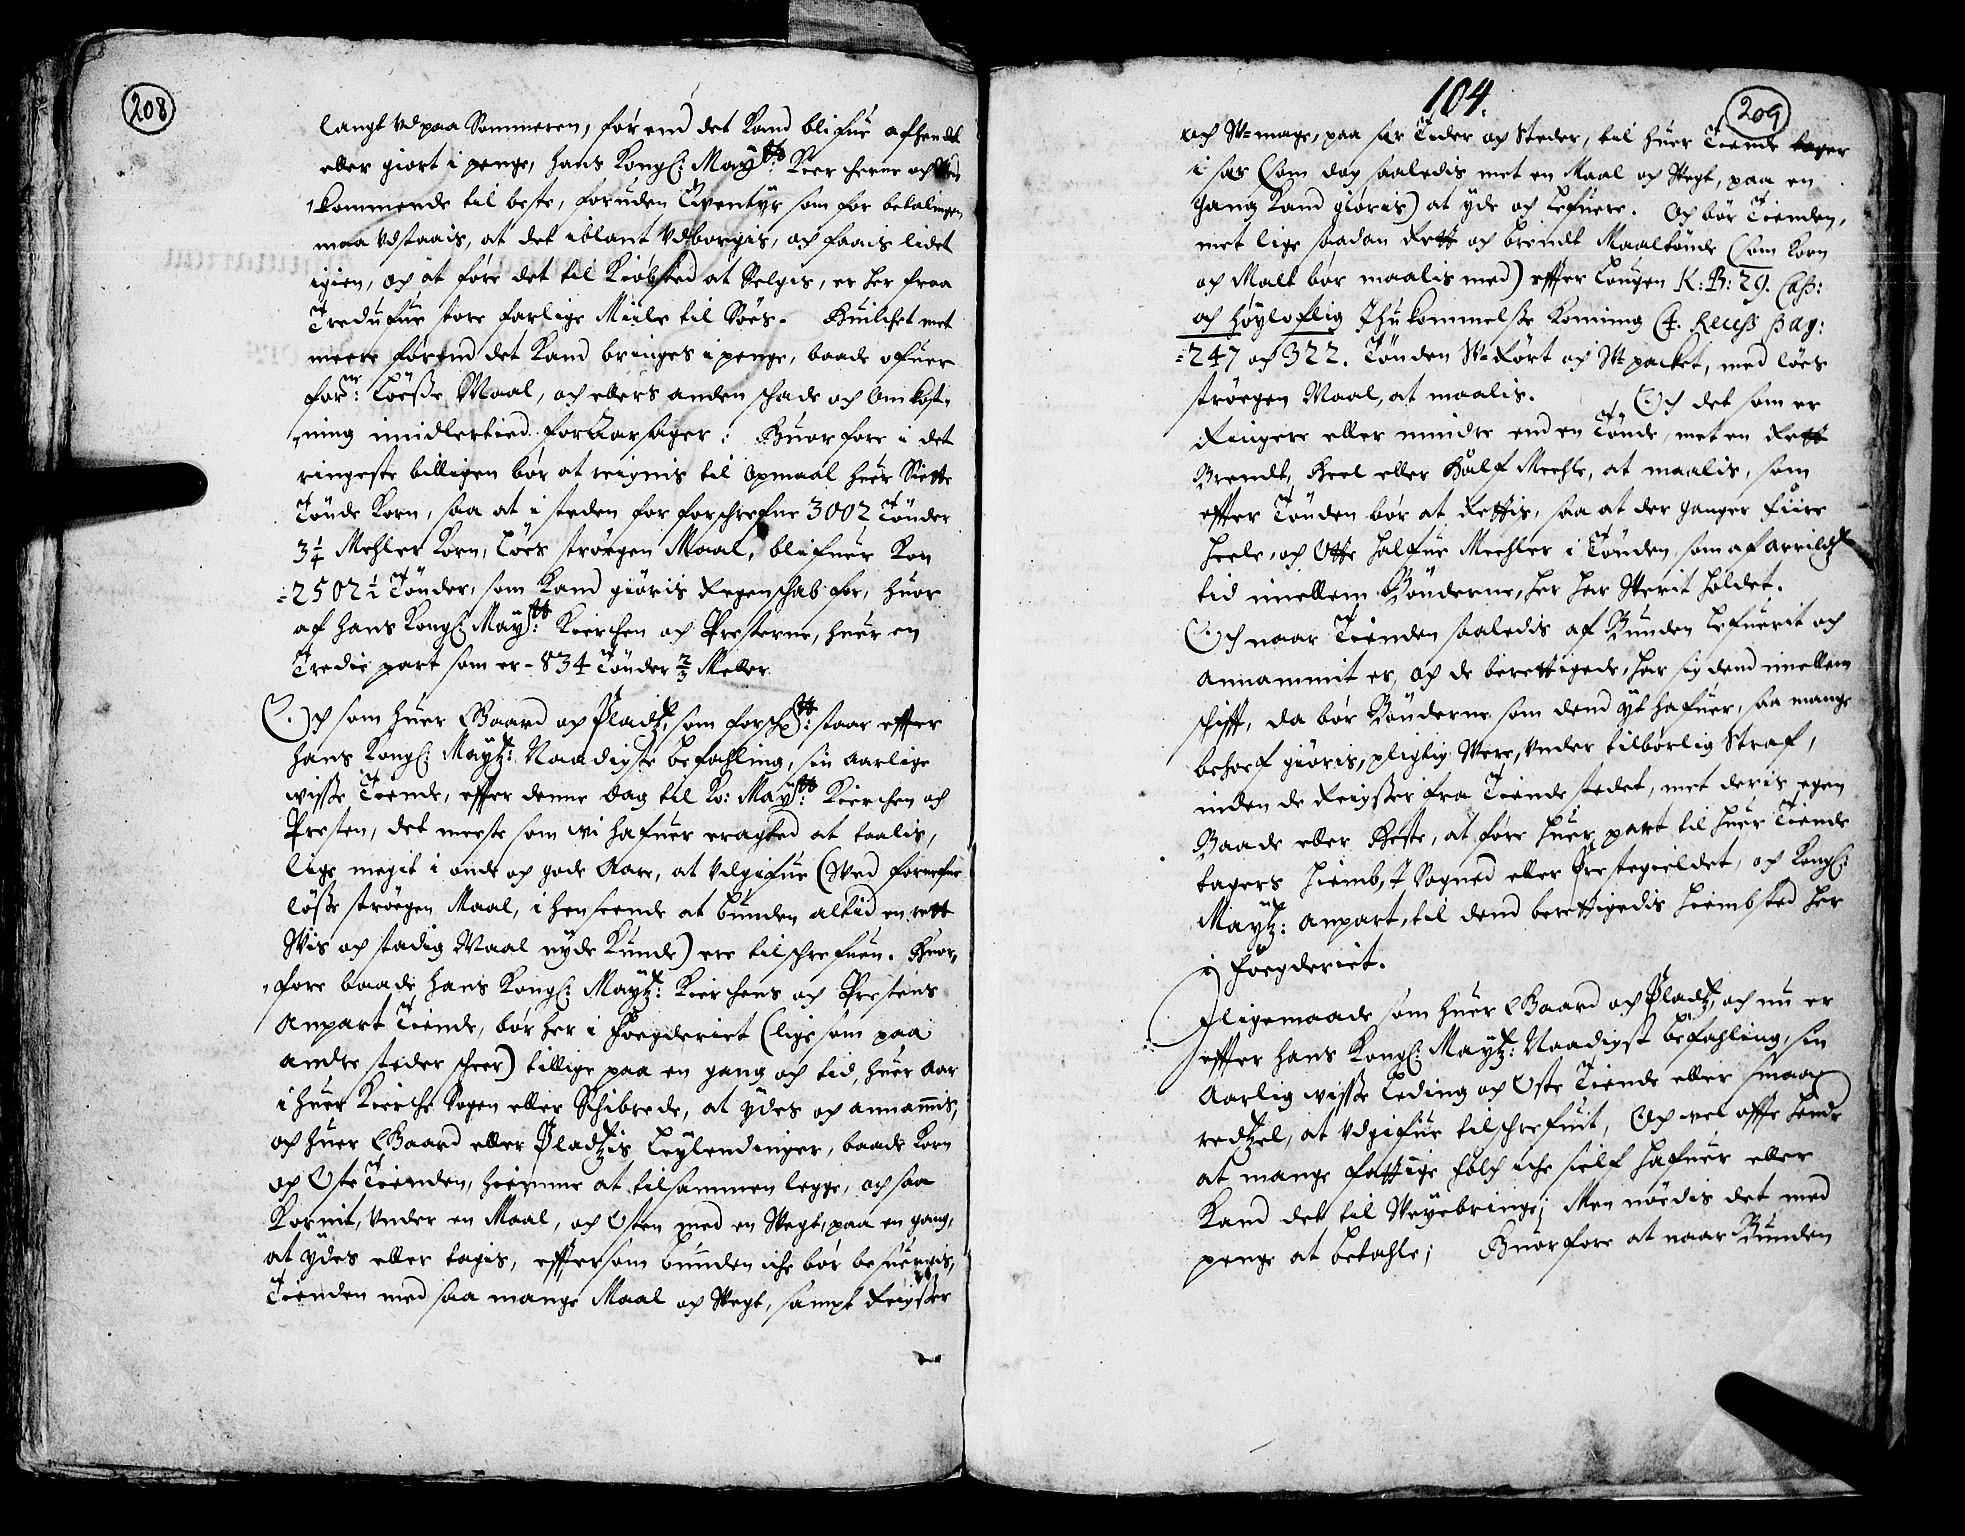 208
langt Ud paa Sommeren, før end det Kand blifue afhendt
eller giort i penge, hans Kongl: Maytts: Kiercherne och Ved
kommende til beste, foruden Eventyr som for betalingen
maa Udstaais, at det iblant Udborgis, och faais lidet
igien, och at føre det til Kiøbsted at Selgis, er her fraa
Tredufue store farlige Miile til Søes. Huilchet met
meere førend det Kand bringes i penge, baade ofuer
forne: Løesse Maal, och ellers anden schade och Omkost-
ning imidlertied foruaarsager: Huorfore i det
ringeste billigen bør at reignis til Opmaal huer Siette
Tønde Korn, saa at i steden for forschrefne 3002 Tønder
3¼ Mehler Korn, Løes strøegen Maal, blifuer Kon
2502½ Tønder, som Kand giøris Regenschab for, huor
af hans Kongl: Maytts: Kierchen och Presterne, huer en
Tredie part som er - 834 Tønder ⅔ Meller
Och som huer Gaard och Pladtz, som forsch: staar effter
hans Kongl: Maytz: Naadigste befahling, sin aarlige
wisse Tiende, effter denne dag til Ko: Maytts: Kierchen och
Presten, det meeste som wi hafuer eragted at taalis,
lige megit i onde och gode Aare, at Udgifue (Wed fornefne
løsse strøegen Maal, i henseende at bunden altid en rett
Wis och stadig Maal nyde Kunde) ere tilschrefuen. Huor-
fore baade hans Kongl: Maytz: Kierchens och Prestens
Anpart Tiende, bør her i Foegderiet (lige som paa
andre steder scheer) tillige paa en gang och tid, huer Aar
i huer Kierche Sogen eller Schibrede, at ydes och annammis,
och huer Gaard eller Pladtzis Leylendinger, baade Korn
och Oste Tienden, hiemme at tilsammen legge, och saa
Kornit, Under en Maal, och Osten med en Wegt, paa en gang,
at ydes eller tagis, effttersom bunden iche bør besuergis,
Tienden med saa mange Maal och Wegt, sampt Reigsser
104.
209
och Wmage, paa sær Tider och Steder, til huer Tiende tager
i sær (som dog saaledis met en Maal och Wegt, paa en
gang Kand giøris) at yde och Lefuere. Och bør Tienden,
met lige saadan Rett och brendt Maaltønde (som Korn
och Malt bør maalis med) effter Lougen K: B: 29. Cap:
och høyloflig Ihukommelsse Konning C4. Recess pag:
247 och 322. Tønden Wrørt och Wpacket, med løes
strøegen Maal, at maalis. Och det som er
Ringere eller mindre end en Tønde, met en Rett
Brendt, Heel eller Half Meehle, at maalis, som
effter Tønden bør at Rettis, saa at der ganger fiire
heele, och Otte halfue Meehler i Tønden, som af arrildtz
tid imellem Bønderne, her har Werit holdet.
Och naar Tienden saaledis af Bunden Lefuerit och
annammit er, och de berettigede, har sig dend imellem
schifft, da bør Bønderne som dend yt hafuer, saa mange
behoef giøris, pligtig Were, Under tilbørlig Straf,
inden de Reigsser fra Tiende stedet, met deris egen
Baade eller Heste, at føre huer part til huer Tiende
tagers hiemb, I Sogned eller Prestegieldet, och Kongl:
Maytz: anpart, til dend berettigedis hiembsted her
i foegderiet.
Iligemaade som huer Gaard och Pladtz, och nu er
effter hans Kongl: Maytz: Naadigst befahling, sin
Aarlig wisse Leding och Oste Tiende eller smaa
redtzel, at Udgifue tilschrefuit, Och wel offte hende
at mange fattige folch iche sielf hafuer eller
Kand det til Weyebringe; Men nøedis det med
penge at betahle; Huorfore at naar Bunden